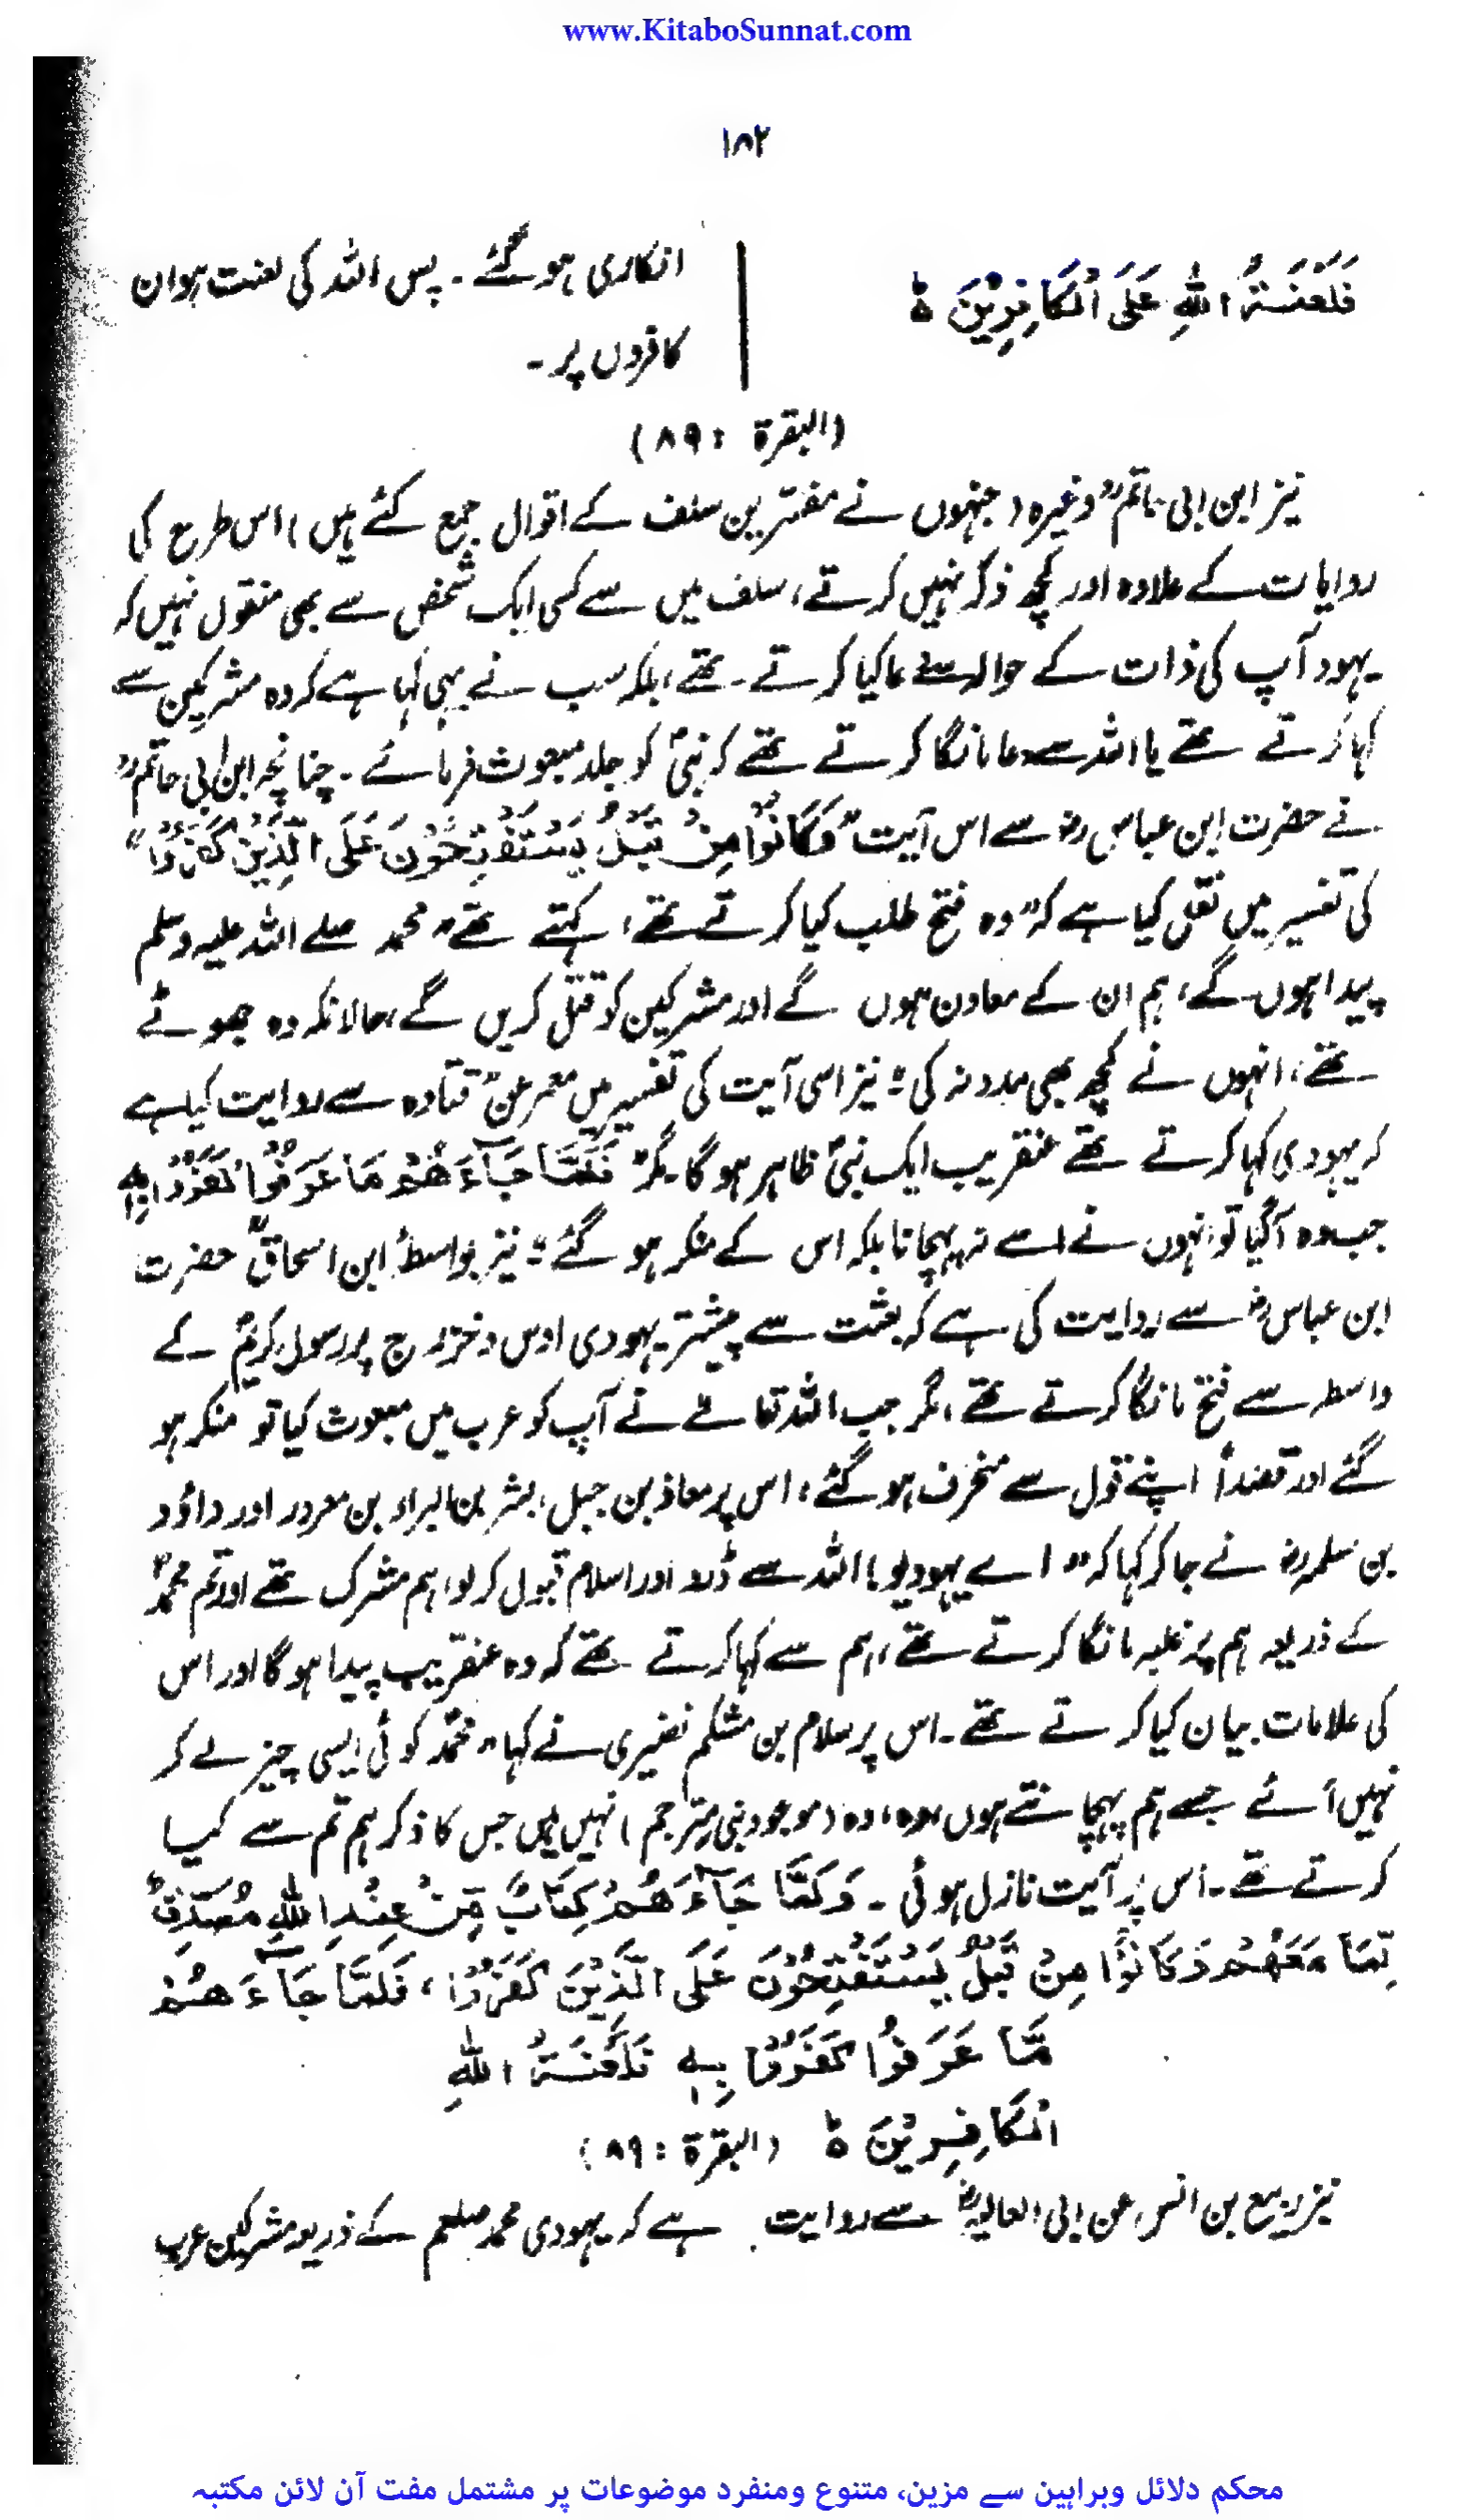 www.KitaboSunnat.com
۱۸۲
فَلَعْنَةُ اللهِ عَلَى الْكَافِرِيْنَ ہ
انکاری ہو گئے ۔ پس اللہ کی لعنت ہو ان
کافروں پر ۔
(البقرة : ۸۹)
نیز ابن ابی حاتمؒ وغیرہ (جنہوں نے مفسّرین سلف کے اقوال جمع کئے ہیں) اس طرح کی
روایات کے علاوہ اور کچھ ذکر نہیں کرتے، سلف میں سے کسی ایک شخص سے بھی منقول نہیں کہ
یہود آپ کی ذات کے حوالہ سے دعا کیا کرتے تھے، بلکہ سب نے یہی کہا ہے کہ وہ مشرکین سے
کہا کرتے تھے یا اللہ سے دعا مانگا کرتے تھے کہ نبیؐ کو جلد مبعوث فرمائے ۔ چنانچہ ابن ابی حاتمؒ
نے حضرت ابن عباسؓ سے اس آیت "وَكَانُوْا مِنْ قَبْلُ يَسْتَفْتِحُوْنَ عَلَى الَّذِيْنَ كَفَرُوْا"
کی تفسیر میں نقل کیا ہے کہ "وہ فتح طلب کیا کرتے تھے، کہتے تھے "محمد صلے اللہ علیہ وسلم
پیدا ہوں گے، ہم ان کے معاون ہوں گے اور مشرکین کو قتل کریں گے، حالانکہ وہ جھوٹے
تھے، انہوں نے کچھ بھی مدد نہ کی" نیز اسی آیت کی تفسیر میں معمر عن قتادہ سے روایت کیا ہے
کہ یہودی کہا کرتے تھے عنقریب ایک نبیؐ ظاہر ہو گا مگر "فَلَمَّا جَآءَهُمْ مَا عَرَفُوْا كَفَرُوْا بِهٖ
جب وہ آگیا تو انہوں نے اسے نہ پہچانا بلکہ اس کے منکر ہو گئے" نیز بواسطہ ابن اسحاقؒ حضرت
ابن عباسؓ سے روایت کی ہے کہ بعثت سے پیشتر یہودی اوس وخزرج پر رسول کریمؐ کے
واسطہ سے فتح مانگا کرتے تھے، مگر جب اللہ تعالےٰ نے آپ کو عرب میں مبعوث کیا تو منکر ہو
گئے اور قصداً اپنے قول سے منحرف ہو گئے، اس پر معاذ بن جبل، بشر بن البراء بن معرور اور داؤد
بن سلمہؓ نے جا کر کہا کہ "اے یہودیو! اللہ سے ڈرو اور اسلام قبول کر لو، ہم مشرک تھے اور تم محمدؐ
کے ذریعہ ہم پر غلبہ مانگا کرتے تھے، ہم سے کہا کرتے تھے کہ وہ عنقریب پیدا ہو گا اور اس
کی علامات بیان کیا کرتے تھے ۔ اس پر سلام بن مشکم نضیری نے کہا "محمدؐ کوئی ایسی چیز لے کر
نہیں آئے جسے ہم پہچانتے ہوں اور وہ، وہ (موعود نبی مترجم) نہیں ہیں جس کا ذکر ہم تم سے کیا
کرتے تھے ۔ اس پر آیت نازل ہوئی ۔ وَلَمَّا جَآءَهُمْ كِتَابٌ مِّنْ عِنْدِ اللهِ مُصَدِّقٌ
لِّمَا مَعَهُمْ وَكَانُوْا مِنْ قَبْلُ يَسْتَفْتِحُوْنَ عَلَى الَّذِيْنَ كَفَرُوْا، فَلَمَّا جَآءَهُمْ
مَّا عَرَفُوْا كَفَرُوْا بِهٖ فَلَعْنَةُ اللهِ
الْكَافِرِيْنَ ہ (البقرة : ۸۹)
نیز ربیع بن انس عن ابی العالیہؒ سے روایت ہے کہ یہودی محمد صلعم کے ذریعہ مشرکین عرب
محکم دلائل وبراہین سے مزین، متنوع ومنفرد موضوعات پر مشتمل مفت آن لائن مکتبہ